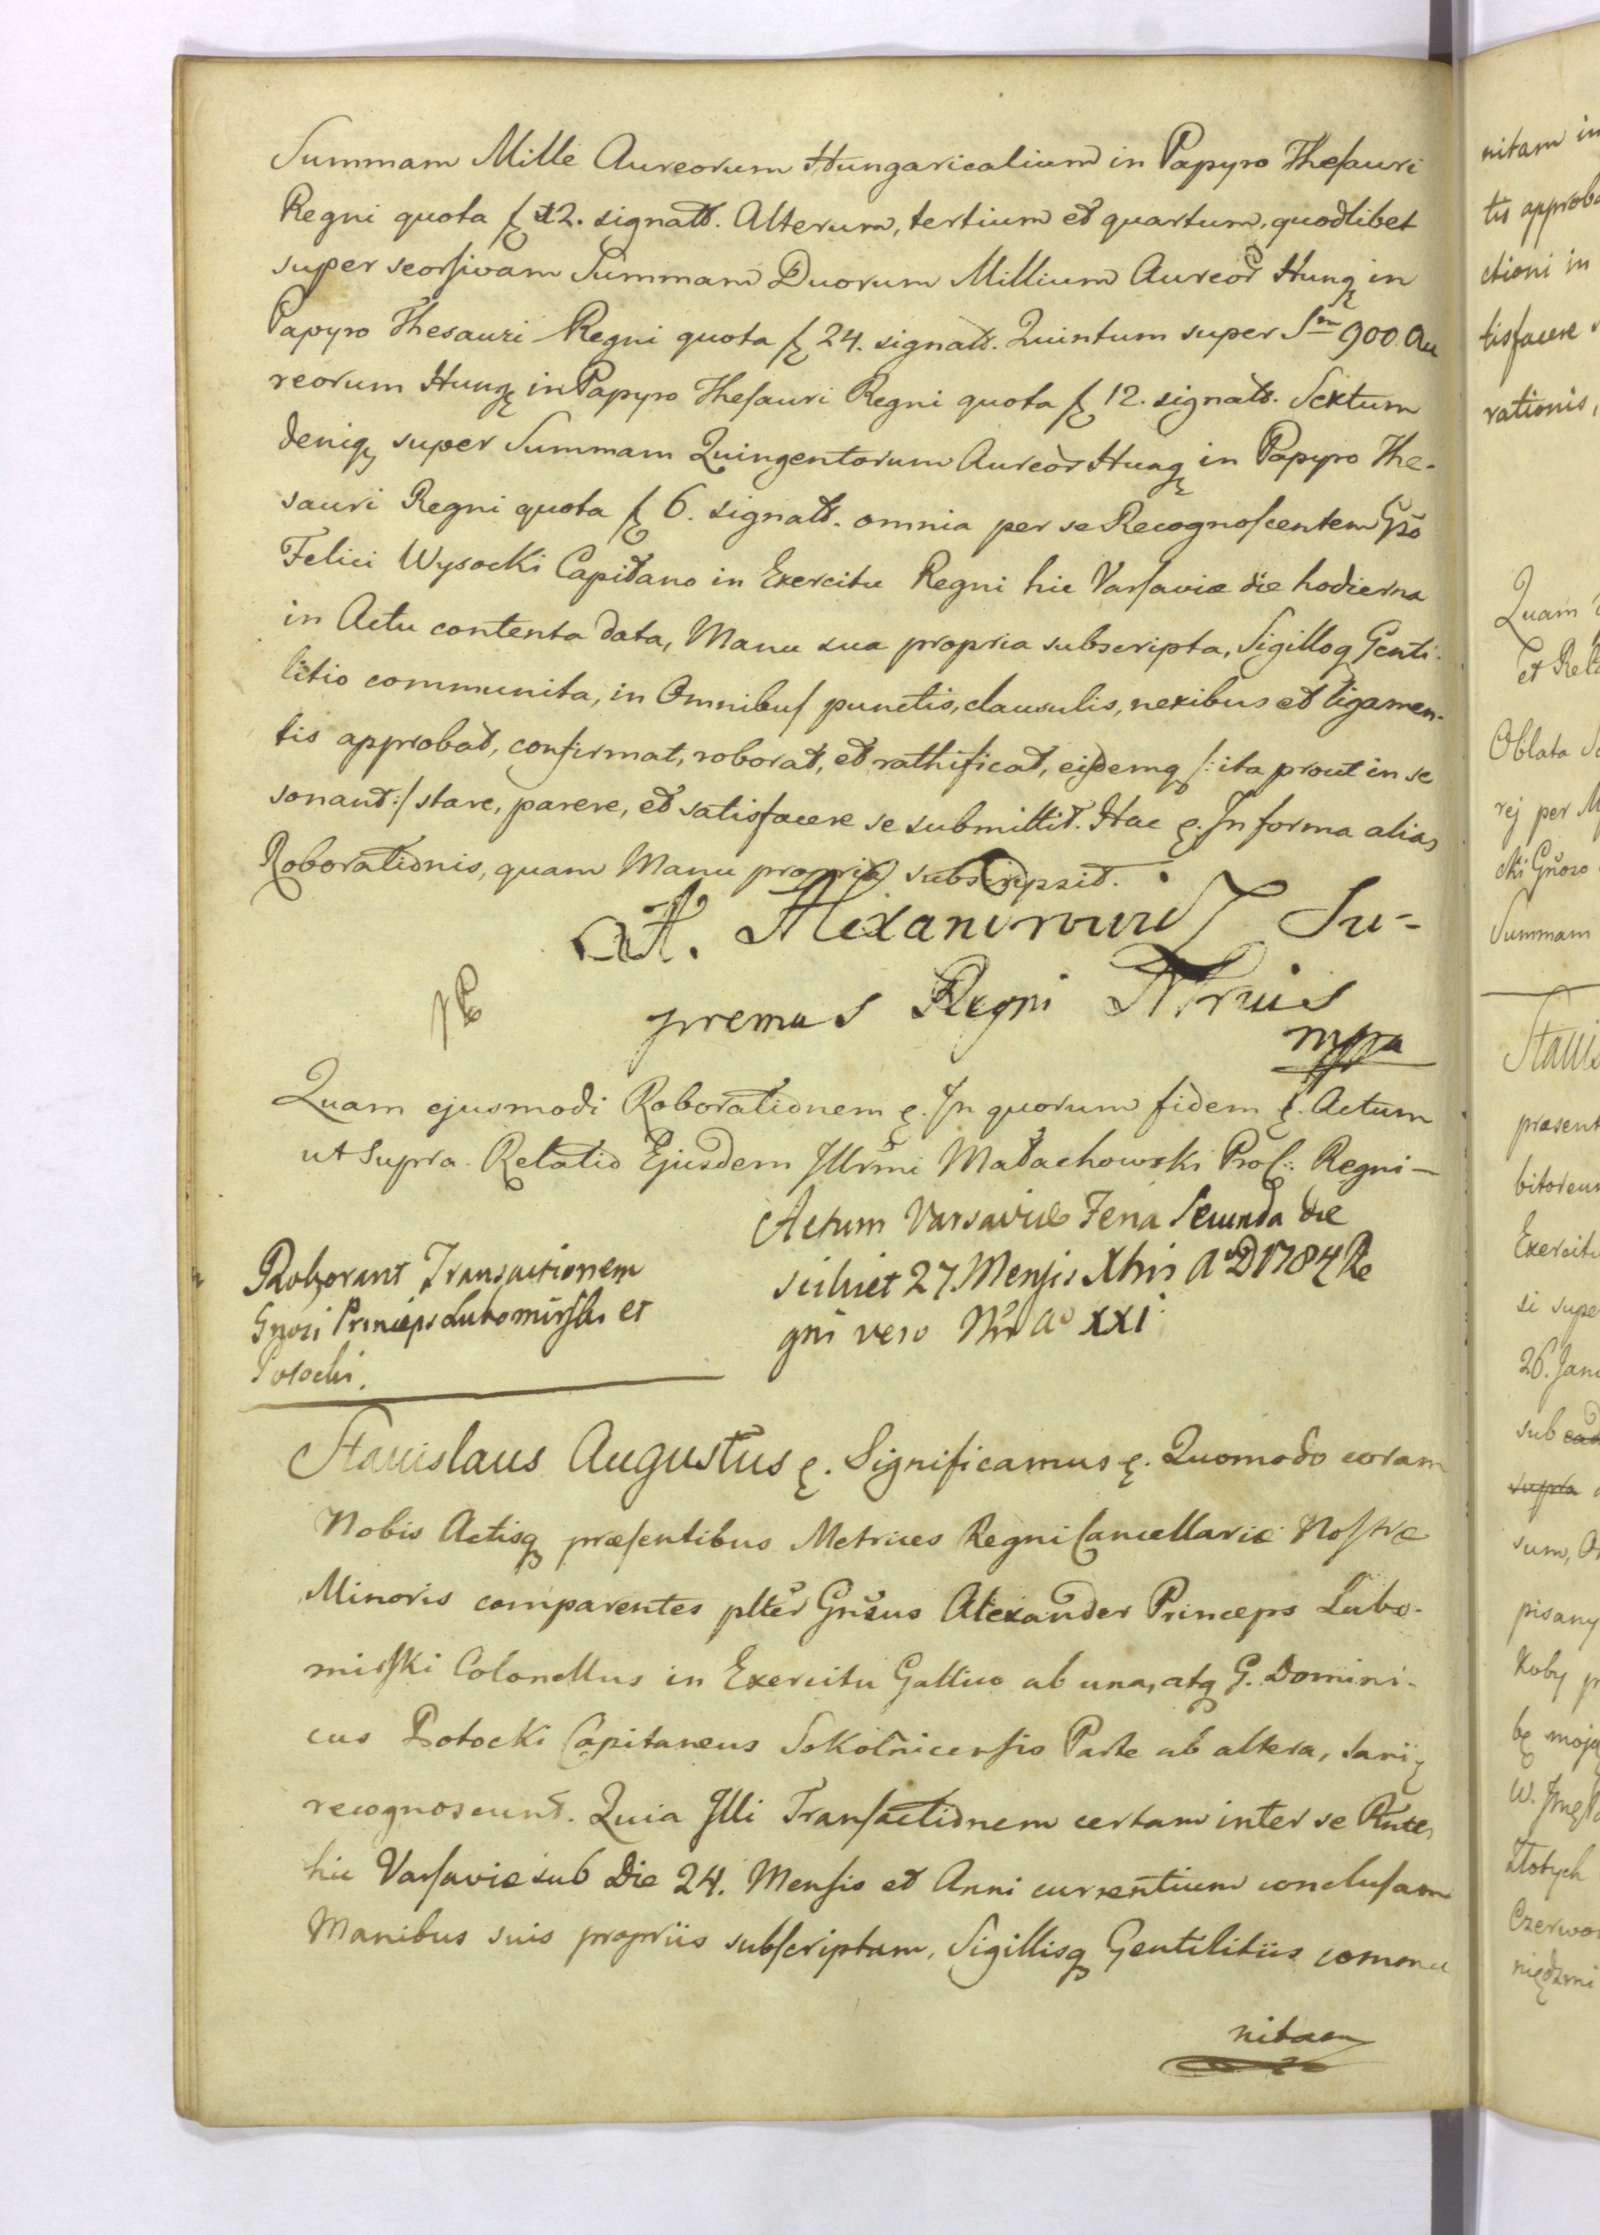 Summam Mille Aureorum Hungaricalium in Papyro Thesauri
Regni quota f 12. signatt. Alterum, tertium et quartum, quodlibet
super seorsivam Summam Duorum Millium Aureor Hung in
Papyro Thesauri Regni quota f 24. signatt. Quintum super Sm 900 Au
reorum Hung in Papyro Thesauri Regni quota f 12. signatt. Sextum
deniq super Summam Quingentorum Aureor Hung in Papyro The-
sauri Regni quota f 6. signatt. omnia per se Recognoscentem Gso
Felici Wysocki Capitano in Exercitu Regni hic Varsaviæ die hodierna
in Actu contenta data, Manu sua propria subscripta, Sigilloq Genti-
litio communita, in Omnibus punctis, clausulis, nexibus et ligamen-
tis approbat, confirmat, roborat, et rathificat, eisdemq /: ita prout in se
sonant :/ stare, parere, et satisfacere se submittit. Hac ę. In forma alias
Roborationis, quam Manu propria subscripsit.
A. Alexandrowicz Su-
premus Regni
mpa
Quam ejusmodi Roborationem ę. In quorum fidem ę. Actum
ut Supra. Relatio Ejusdem Illrmi Małachowski Prol: Regni —
Actum Varsaviæ Feria Secunda die
scilicet 27 Mensis Xbris Ao D 1784 Re
gni vero Nri Ao XXI
Roborant Transactionem
Gnosi Princeps Lubomirski et
Potocki.
Stanislaus Augustus ę. Significamus ę. Quomodo coram
Nobis Actisq præsentibus Metrices Regni Cancellariæ Nostræ
Minoris comparentes plter Gnsus Alexander Princeps Lubo-
mirski Colonellus in Exercitu Gallico ab una, atq G. Domini-
cus Potocki Capitaneus Sokolnicensis Parte ab altera, sani ę
recognoscunt. Quia Illi Transactionem certam inter se Rntes
hic Varsaviæ sub Die 24. Mensis et Anni currentium conclusam
Manibus suis propriis subscriptam, Sigillisq Gentilitiis commu
nitam
nitam in
tis approba
ctioni in
tisfacere
rationis,
Quam
et Rela
Oblata
rej per
cki Gnoso
Summam
Stanis
præsent
bitoreum
Exercitu
si supe
26. Janu
sub
supra
sum,
pisany
koby
bę moją
złotych
Czerwon